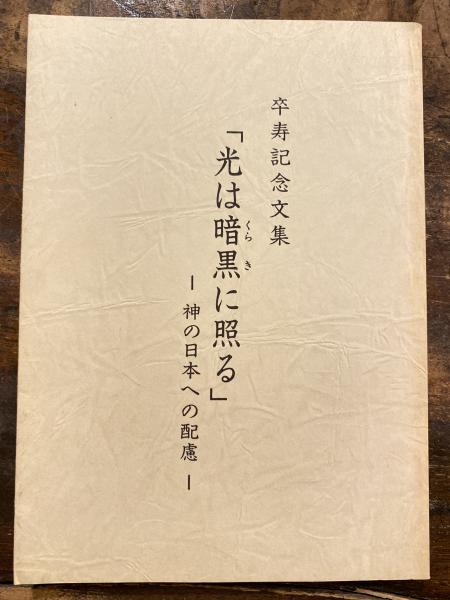 卒寿記念文集
「光は暗黒に照る」
くらき
― 神の日本への配慮 ―